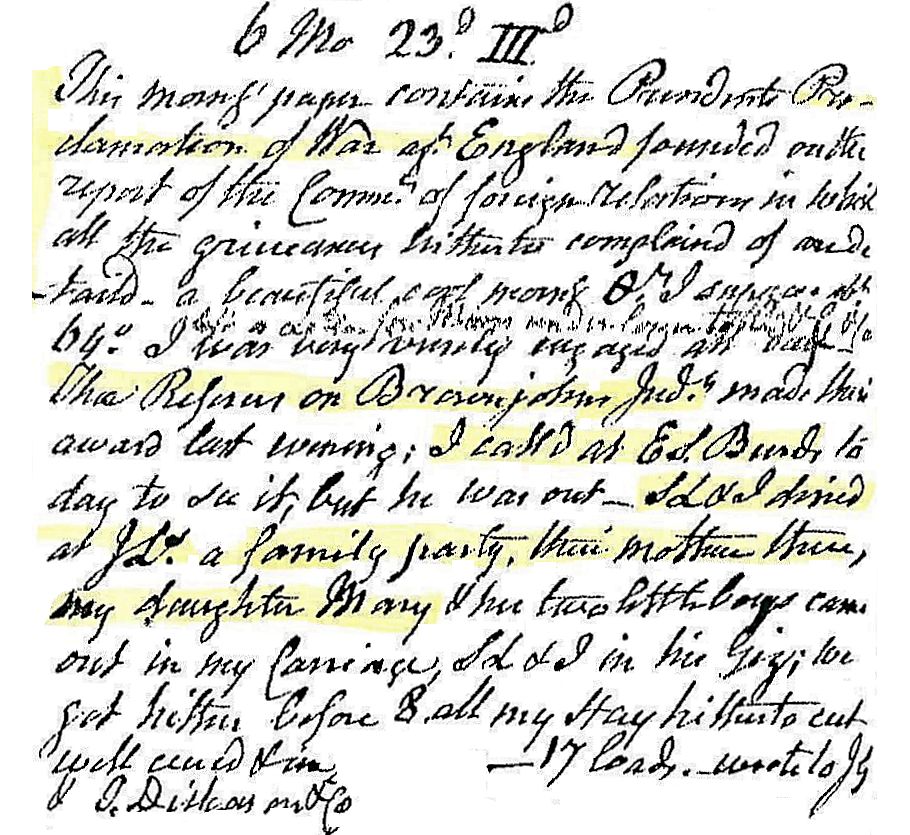 6 Mo 23d III d
This morng' paper contains the Presidents Pro-
clamation of War agt England founded on the
report of the Commee of foreign relations in which
all the grievances hitherto complained of are de
-taild - a beautiful cool morng I suppose abt
I was very busily engaged all day
The Referees on Brownjohns Judgt made their
award last evening; I call'd at E S. Burds to
day to see it, but he was out — S L & I dined
at J Ls a family party, their mother there,
my daughter Mary & her two little boys came
out in my Carriage, S L & I in his Gig; we
got hither before 8. all my Hay hitherto cut
well cured & in — 17 loads. - wrote to J G
& J. Dickason & Co